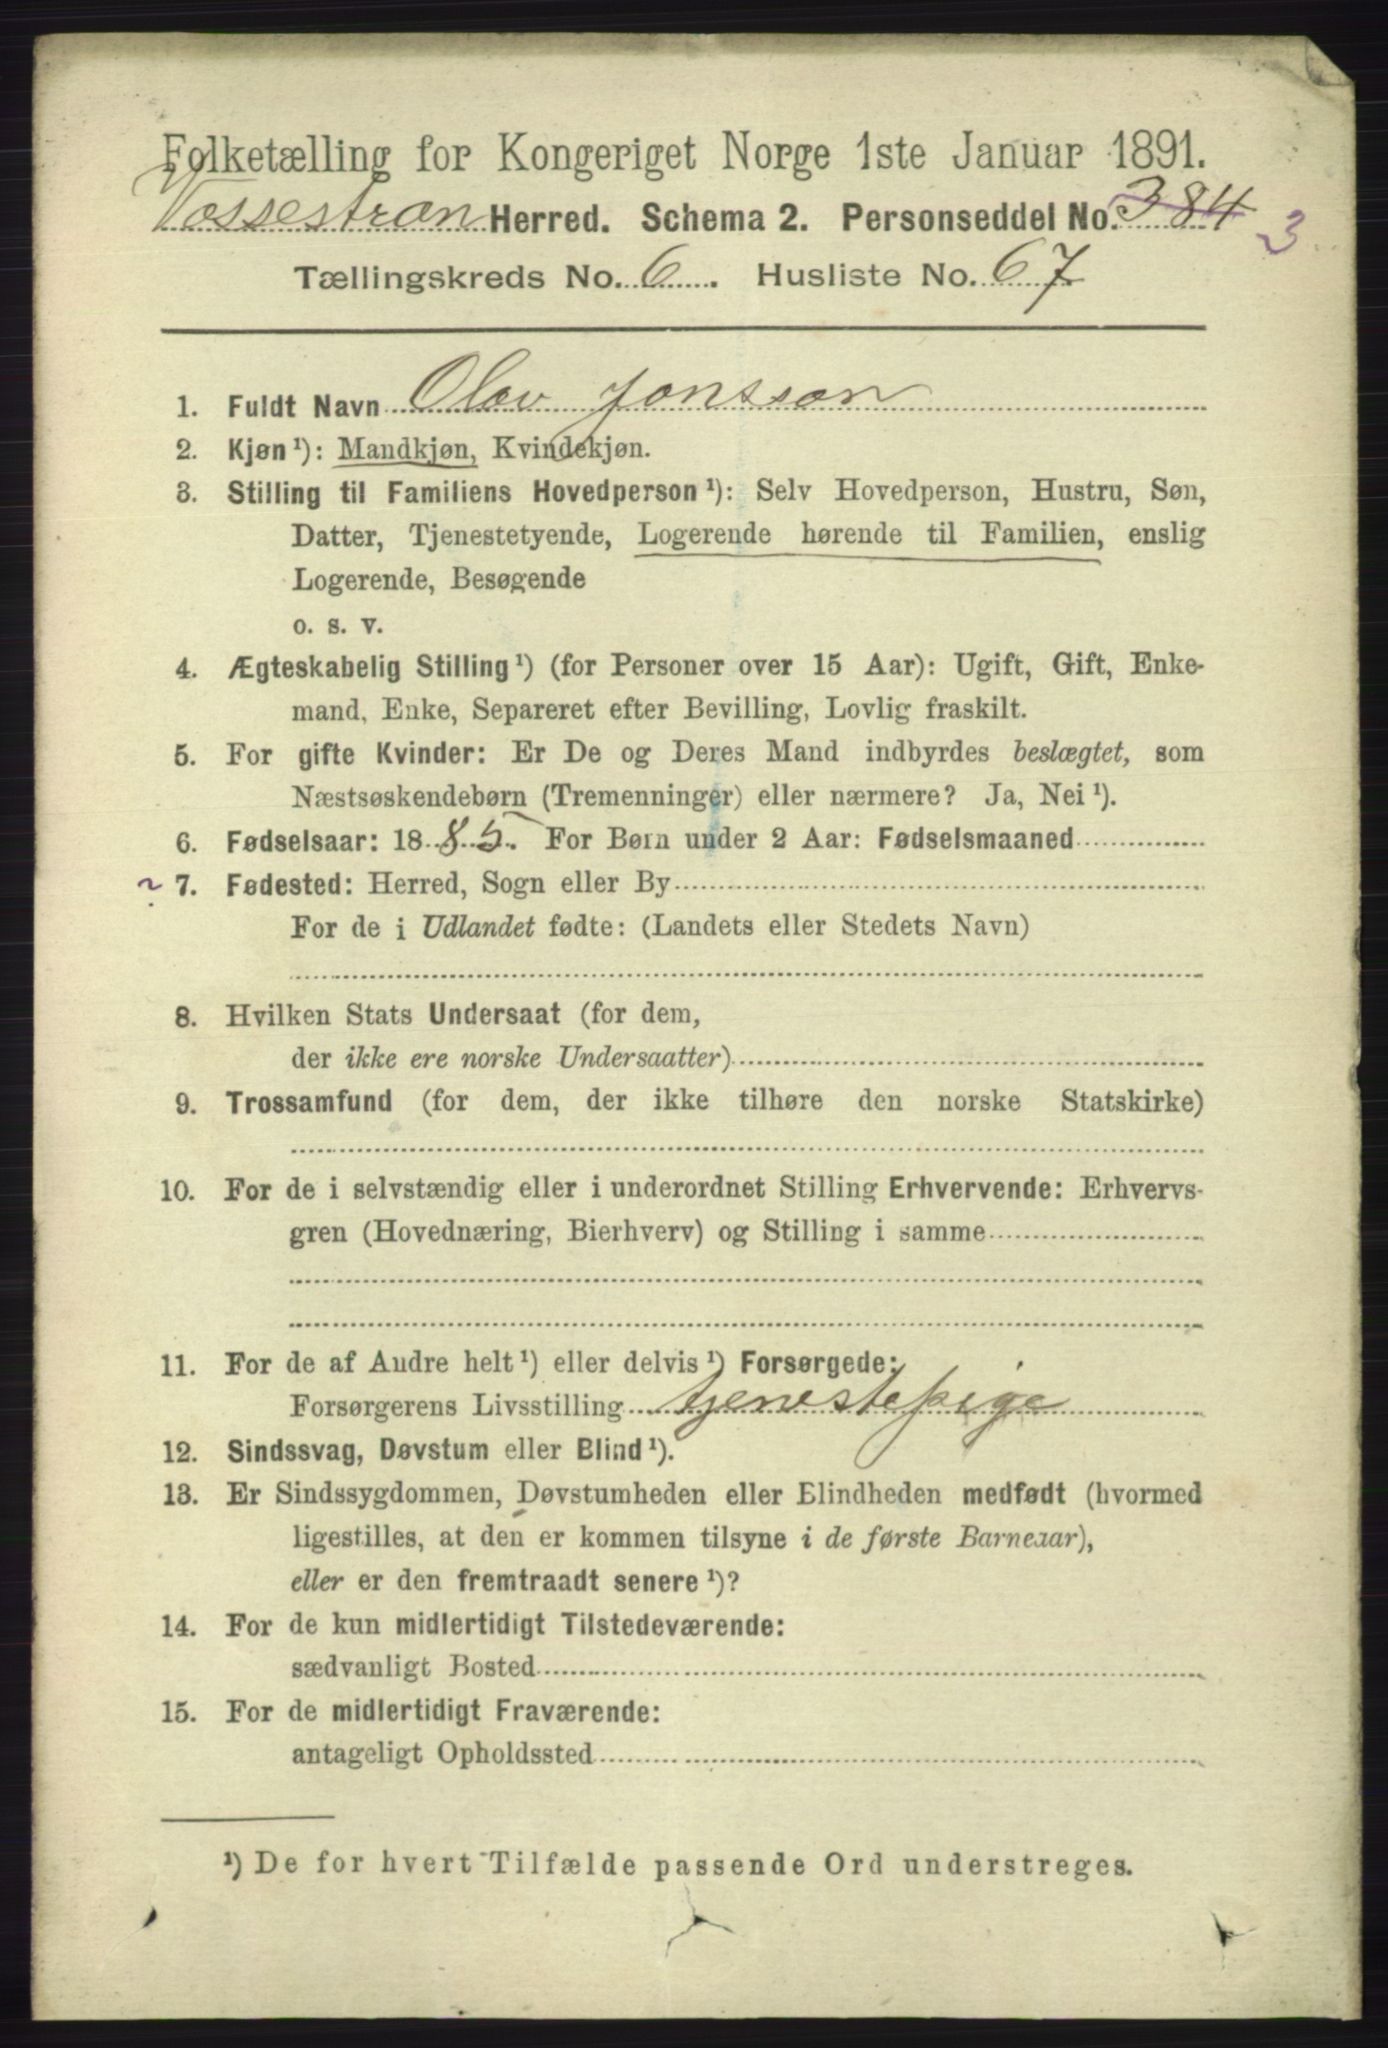 Folketælling for Kongeriget Norge 1ste Januar 1891.
Vossestran Herred. Schema 2. Personseddel No. 384 3
Tællingskreds No. 6. Husliste No. 67
1. Fuldt Navn Olav Jonsson
2. Kjøn¹): Mandkjøn, Kvindekjøn.
3. Stilling til Familiens Hovedperson¹): Selv Hovedperson, Hustru, Søn,
Datter, Tjenestetyende, Logerende hørende til Familien, enslig
Logerende, Besøgende
o. s. v.
4. Ægteskabelig Stilling¹) (for Personer over 15 Aar): Ugift, Gift, Enke-
mand, Enke, Separeret efter Bevilling, Lovlig fraskilt.
5. For gifte Kvinder: Er De og Deres Mand indbyrdes beslægtet, som
Næstsøskendebørn (Tremenninger) eller nærmere? Ja, Nei¹).
6. Fødselsaar: 1885. For Børn under 2 Aar: Fødselsmaaned
? 7. Fødested: Herred, Sogn eller By
For de i Udlandet fødte: (Landets eller Stedets Navn)
8. Hvilken Stats Undersaat (for dem,
der ikke ere norske Undersaatter)
9. Trossamfund (for dem, der ikke tilhøre den norske Statskirke)
10. For de i selvstændig eller i underordnet Stilling Erhvervende: Erhvervs-
gren (Hovednæring, Bierhverv) og Stilling i samme
11. For de af Andre helt¹) eller delvis¹) Forsørgede:
Forsørgerens Livsstilling tjenestepige
12. Sindssvag, Døvstum eller Blind¹).
13. Er Sindssygdommen, Døvstumheden eller Blindheden medfødt (hvormed
ligestilles, at den er kommen tilsyne i de første Barneaar),
eller er den fremtraadt senere¹)?
14. For de kun midlertidigt Tilstedeværende:
sædvanligt Bosted
15. For de midlertidigt Fraværende:
antageligt Opholdssted
¹) De for hvert Tilfælde passende Ord understreges.